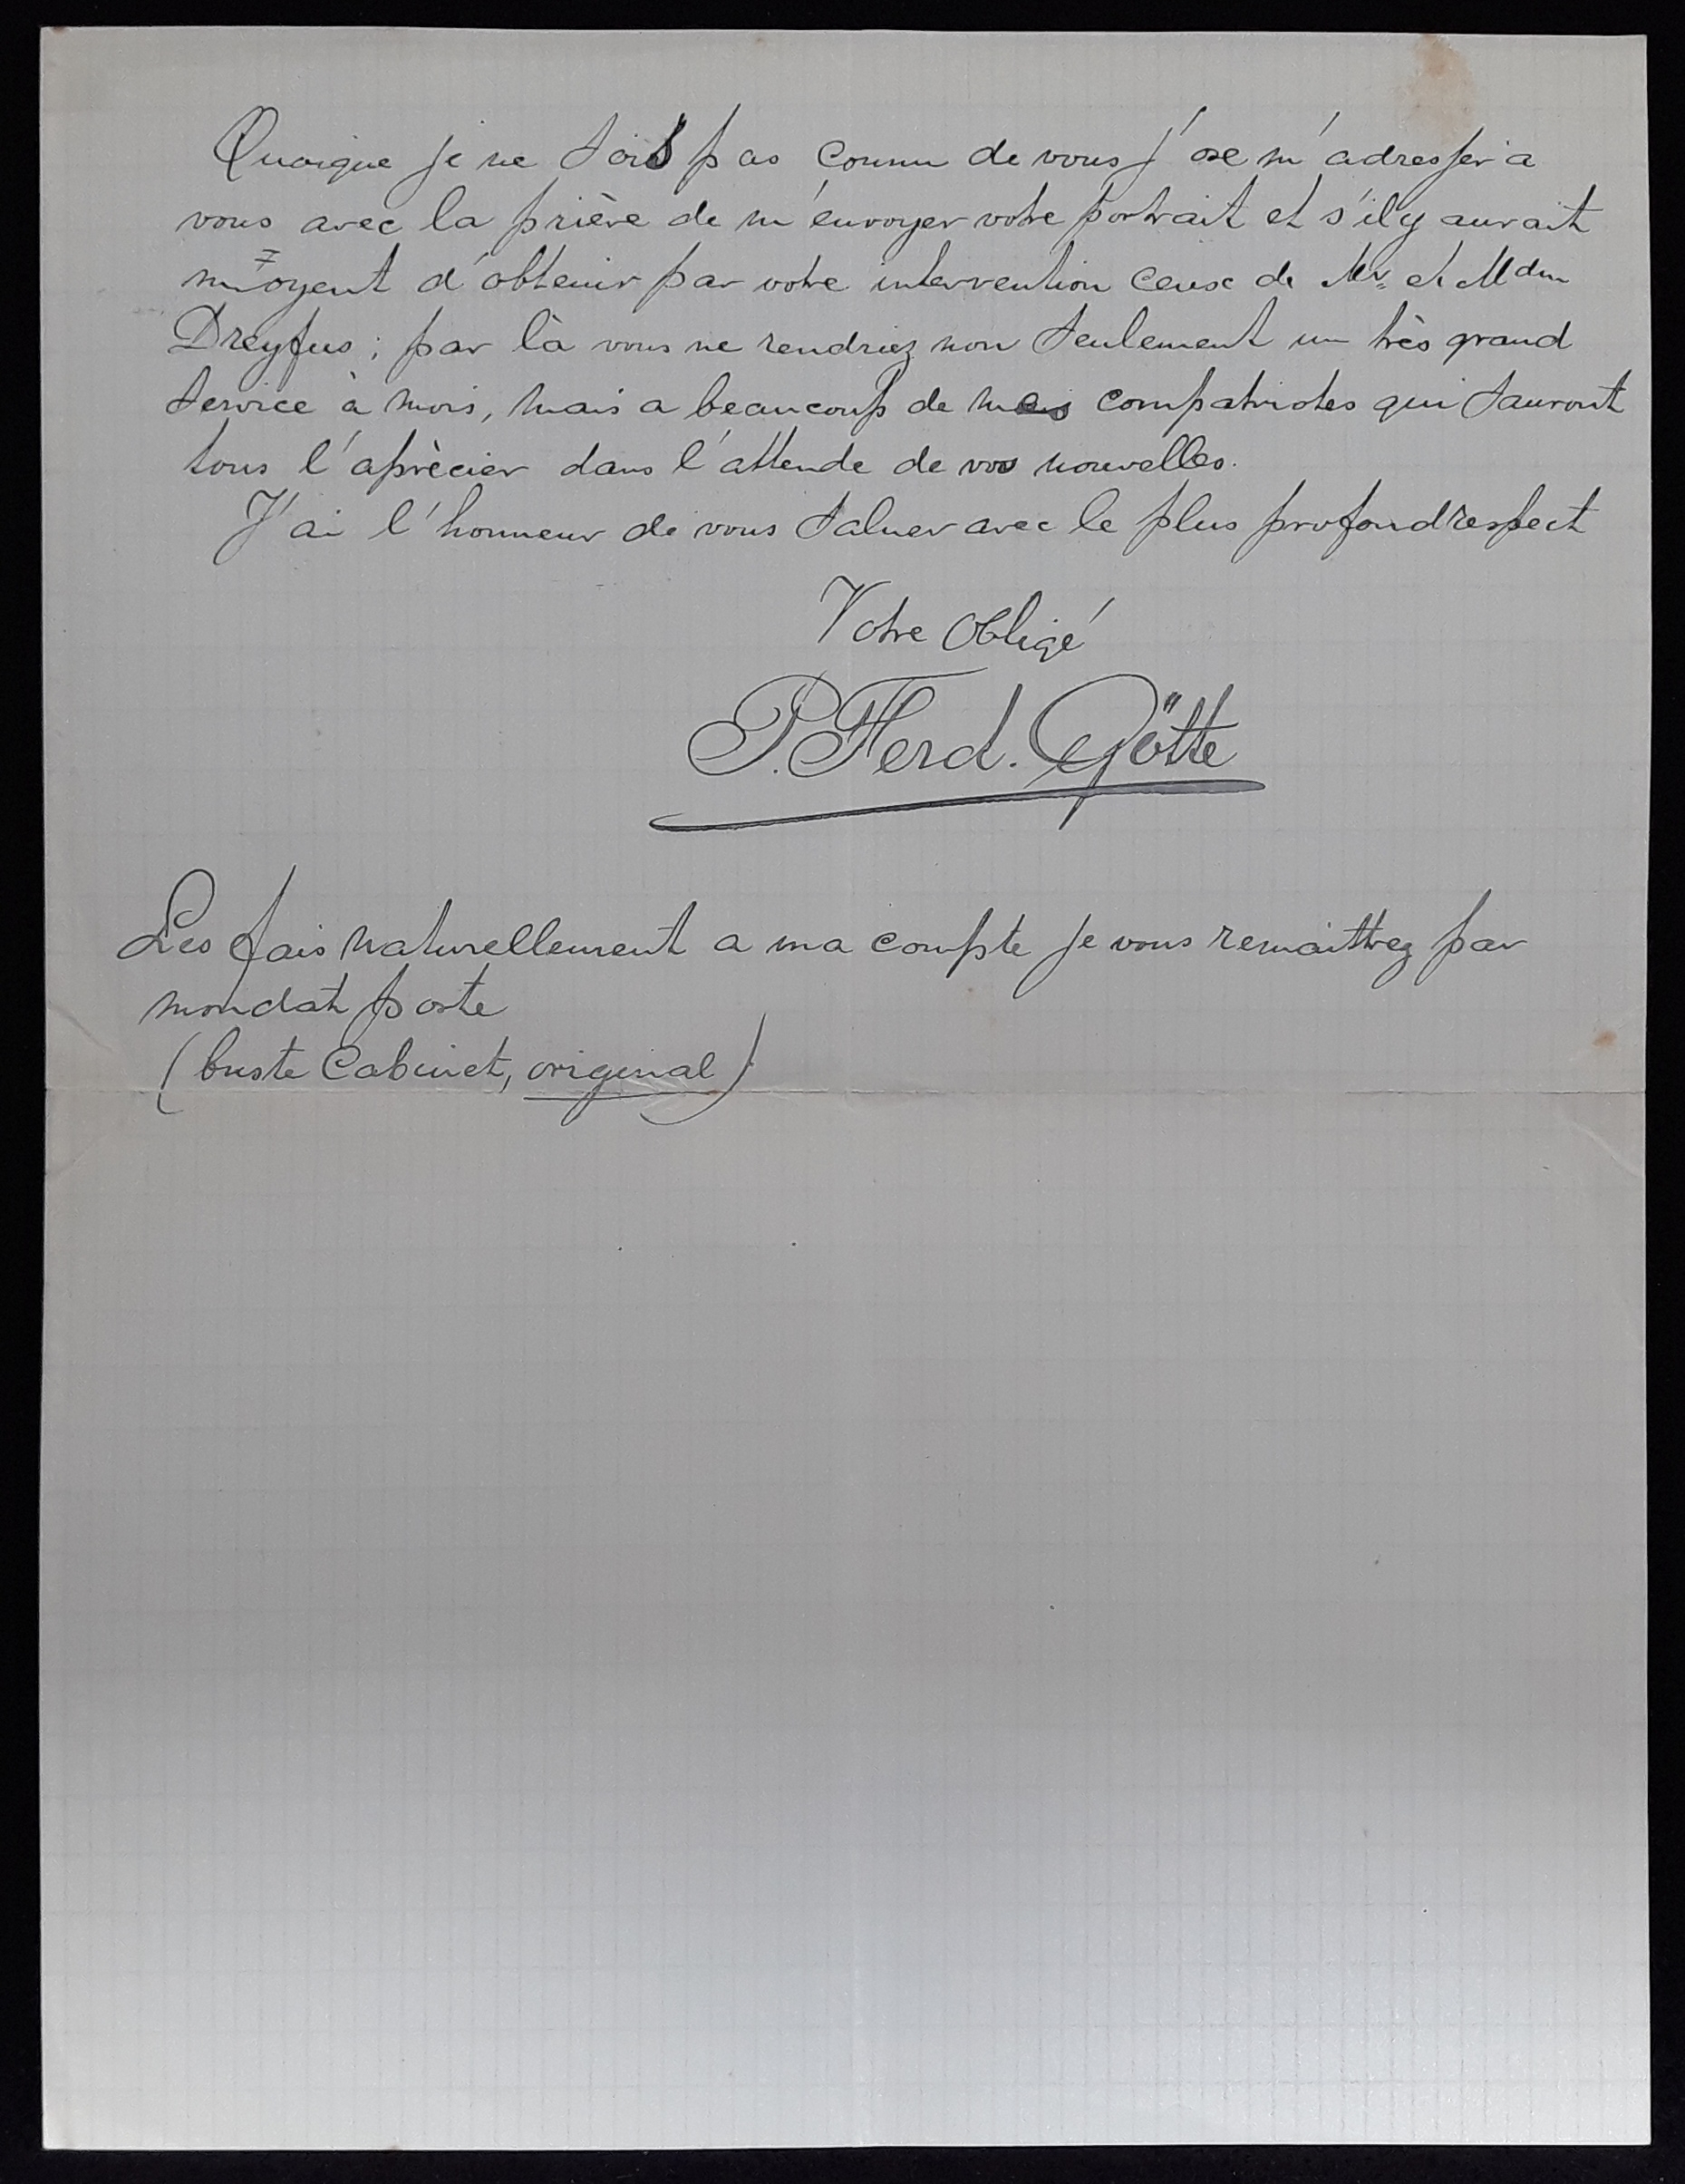 Quoique je ne sois pas connu de vous j'ose m'adresser a
vous avec la prière de m'envoyer votre portrait et s'il y aurait
moyent d'obtenir par votre intervention ceux de Mr. et Mdm
Dreyfus; par là vous ne rendriez non seulement un très grand
service à mois, mais a beaucoup de mes compatriotes qui sauront
tous l'aprècier dans l'attende de vos nouvelles.
J'ai l'honneur de vous saluer avec le plus profond respect
Votre obligé
P. Ferd. Götte
Les fais naturellement a ma compte je vous remaittrez par
mondat poste
(buste Cabinet, original)